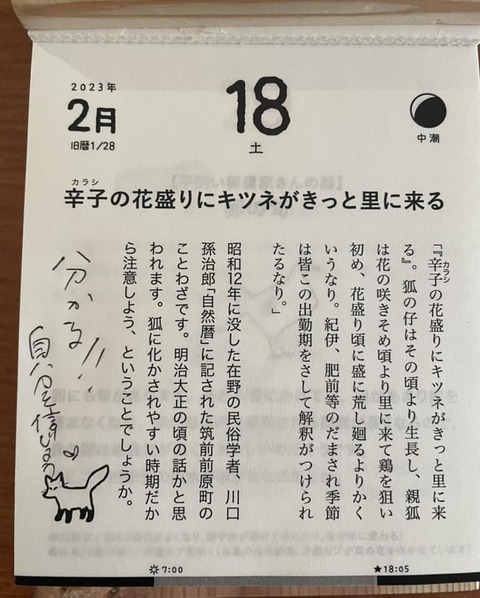 2023年
2月
旧暦1/28
18
土
中潮
カラシ
辛子の花盛りにキツネがきっと里に来る
「『辛子の花盛りにキツネがきっと里に来
カラシ
る』。狐の仔はその頃より生長し、親狐
は花の咲きそめ頃より里に来て鶏を狙い
初め、花盛り頃に盛に荒し廻るよりかく
いうなり。紀伊、肥前等のだまされ季節
は皆この出勤期をさして解釈がつけられ
たるなり。」
昭和12年に没した在野の民俗学者、川口
孫治郎「自然暦」に記された筑前前原町の
ことわざです。明治大正の頃の話かと思
われます。狐に化かされやすい時期だか
ら注意しよう、ということでしょうか。
分かる!!
自分を信じる
7:00
18:05